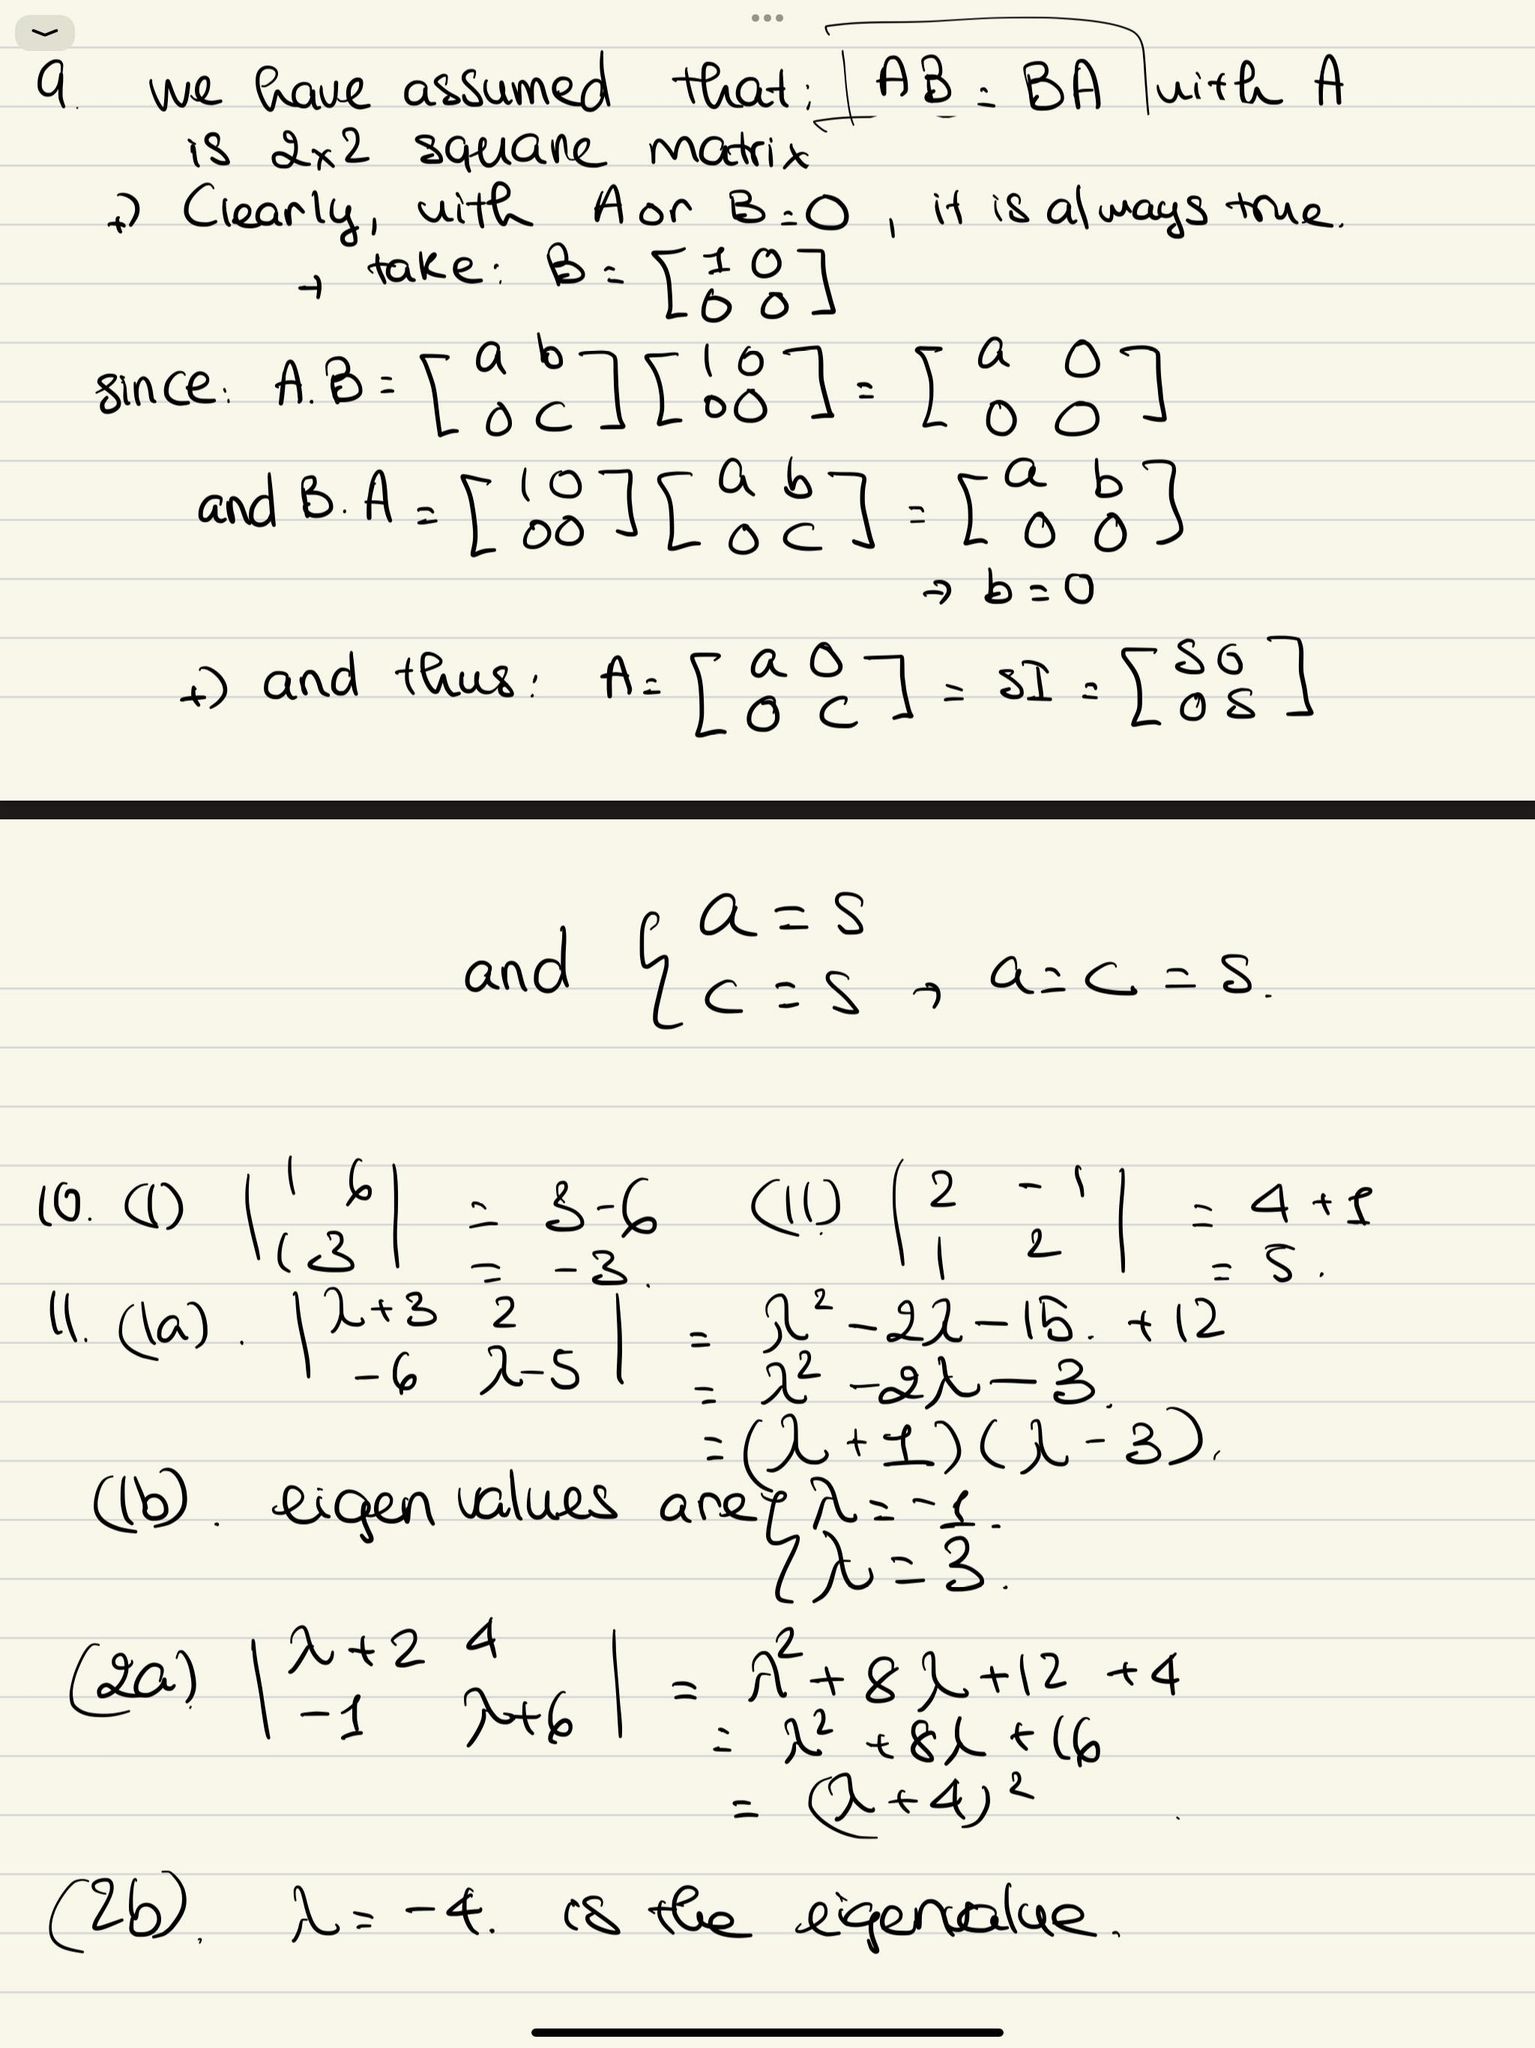 9. we have assumed that: AB = BA with A
is 2x2 square matrix
+) Clearly, with A or B = 0, it is always true.
→ take: B = [1 0; 0 0]
since: A.B = [a b; 0 c] [1 0; 0 0] = [a 0; 0 0]
and B.A = [1 0; 0 0] [a b; 0 c] = [a b; 0 0]
→ b = 0
+) and thus: A = [a 0; 0 c] = sI = [s 0; 0 s]
and { a = s
c = s → a = c = s.
10. (1) |1 6; 1 3| = 3-6 (11) |2 -1; 1 2| = 4+1
= -3. = 5.
11. (1a). |λ+3 2; -6 λ-5| = λ² - 2λ - 15. + 12
= λ² - 2λ - 3.
= (λ+1)(λ-3).
(1b). eigenvalues are { λ = -1.
λ = 3.
(2a) |λ+2 4; -1 λ+6| = λ² + 8λ + 12 + 4
= λ² + 8λ + 16
= (λ+4)²
(2b). λ = -4. is the eigenvalue.